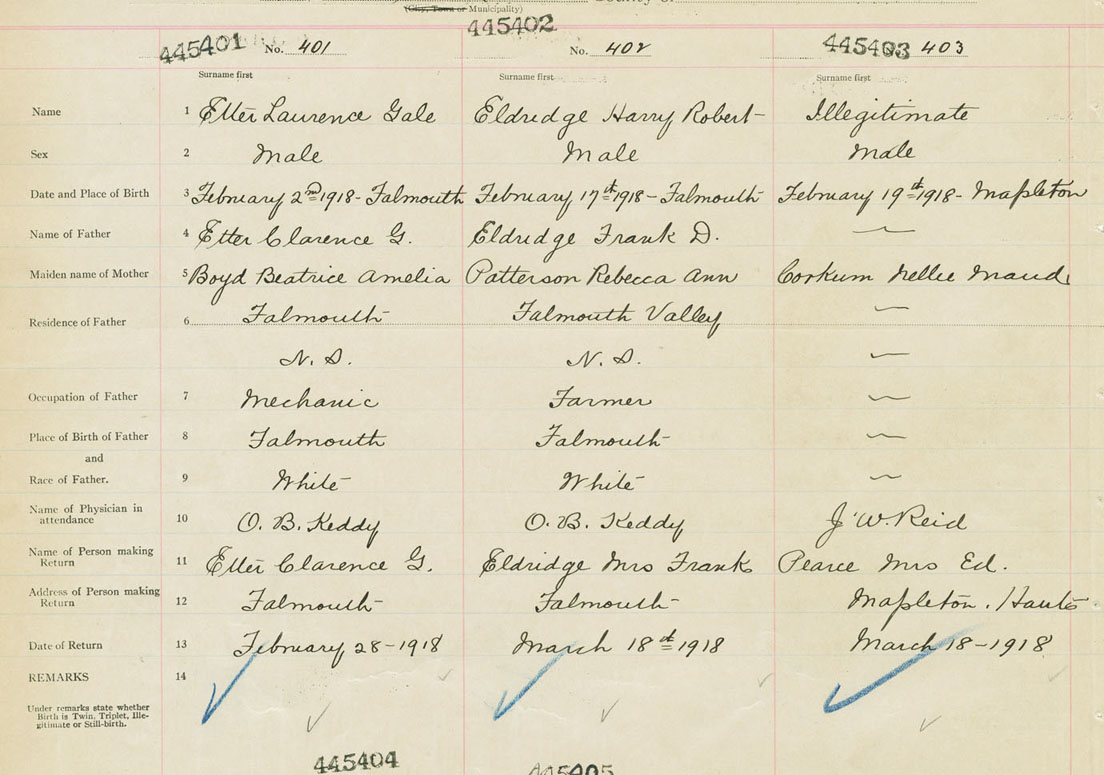 (City, Town or Municipality)
445401 No. 401
445402 No. 402
445403 403
Surname first Surname first Surname first
Name 1 Etter Laurence Gale Eldredge Harry Robert Illegitimate
Sex 2 Male Male Male
Date and Place of Birth 3 February 2nd 1918 - Falmouth February 17th 1918 - Falmouth February 19th 1918 - Mapleton
Name of Father 4 Etter Clarence G. Eldredge Frank D. —
Maiden name of Mother 5 Boyd Beatrice Amelia Patterson Rebecca Ann Corkum Nellie Maud
Residence of Father 6 Falmouth Falmouth Valley —
N. S. N. S. —
Occupation of Father 7 Mechanic Farmer —
Place of Birth of Father 8 Falmouth Falmouth —
and
Race of Father. 9 White White —
Name of Physician in
attendance 10 O. B. Keddy O. B. Keddy J. W. Reid
Name of Person making
Return 11 Etter Clarence G. Eldridge Mrs Frank Pearce Mrs Ed.
Address of Person making
Return 12 Falmouth Falmouth Mapleton. Hants
Date of Return 13 February 28-1918 March 18th 1918 March 18-1918
REMARKS 14
Under remarks state whether
Birth is Twin, Triplet, Ille-
gitimate or Still-birth.
445404 445405